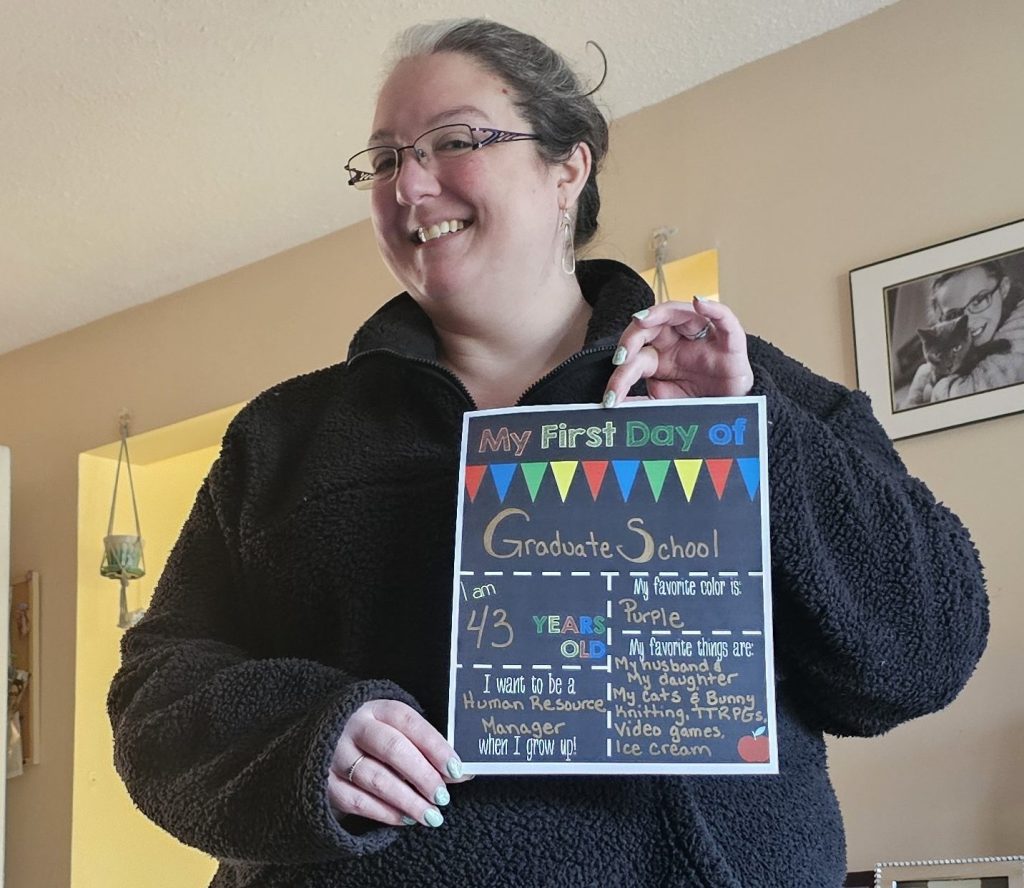 My First Day of
Graduate School
I am
43 YEARS
OLD
I want to be a
Human Resource
Manager
when I grow up!
My favorite color is:
Purple
My favorite things are:
My husband &
My daughter
My cats & Bunny
Knitting, TTRPGs,
Video games,
Ice cream